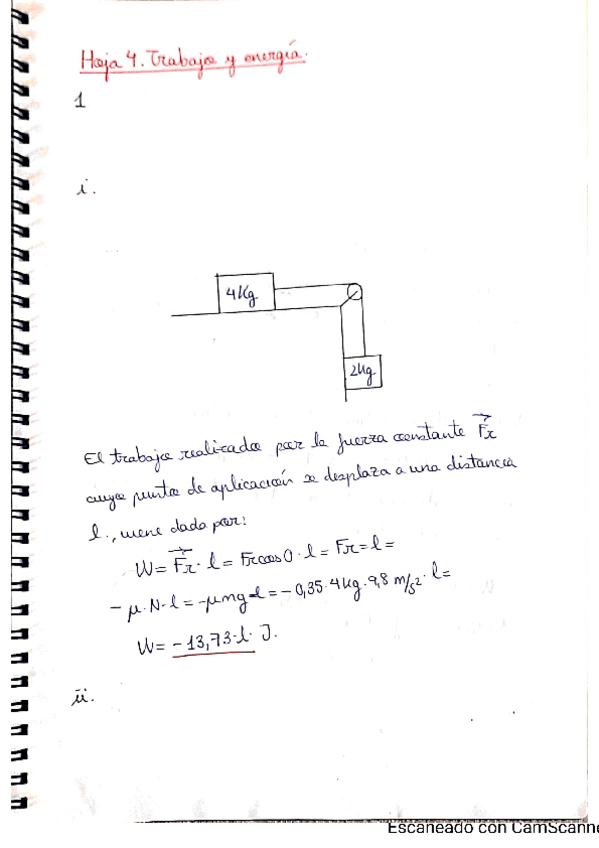 Hoja 4. Trabajo y energía.
1
i.
4Kg
2Kg
El trabajo realizado por la fuerza constante Fr
cuyo punto de aplicación se desplaza a una distancia
l., viene dado por:
W= Fr · l = Fr cos 0 · l = Fr = l =
- μ · N · l = -μmg l = - 0,35 · 4kg · 9,8 m/s² · l =
W= - 13,73 · l · J.
ii.
Escaneado con CamScanne